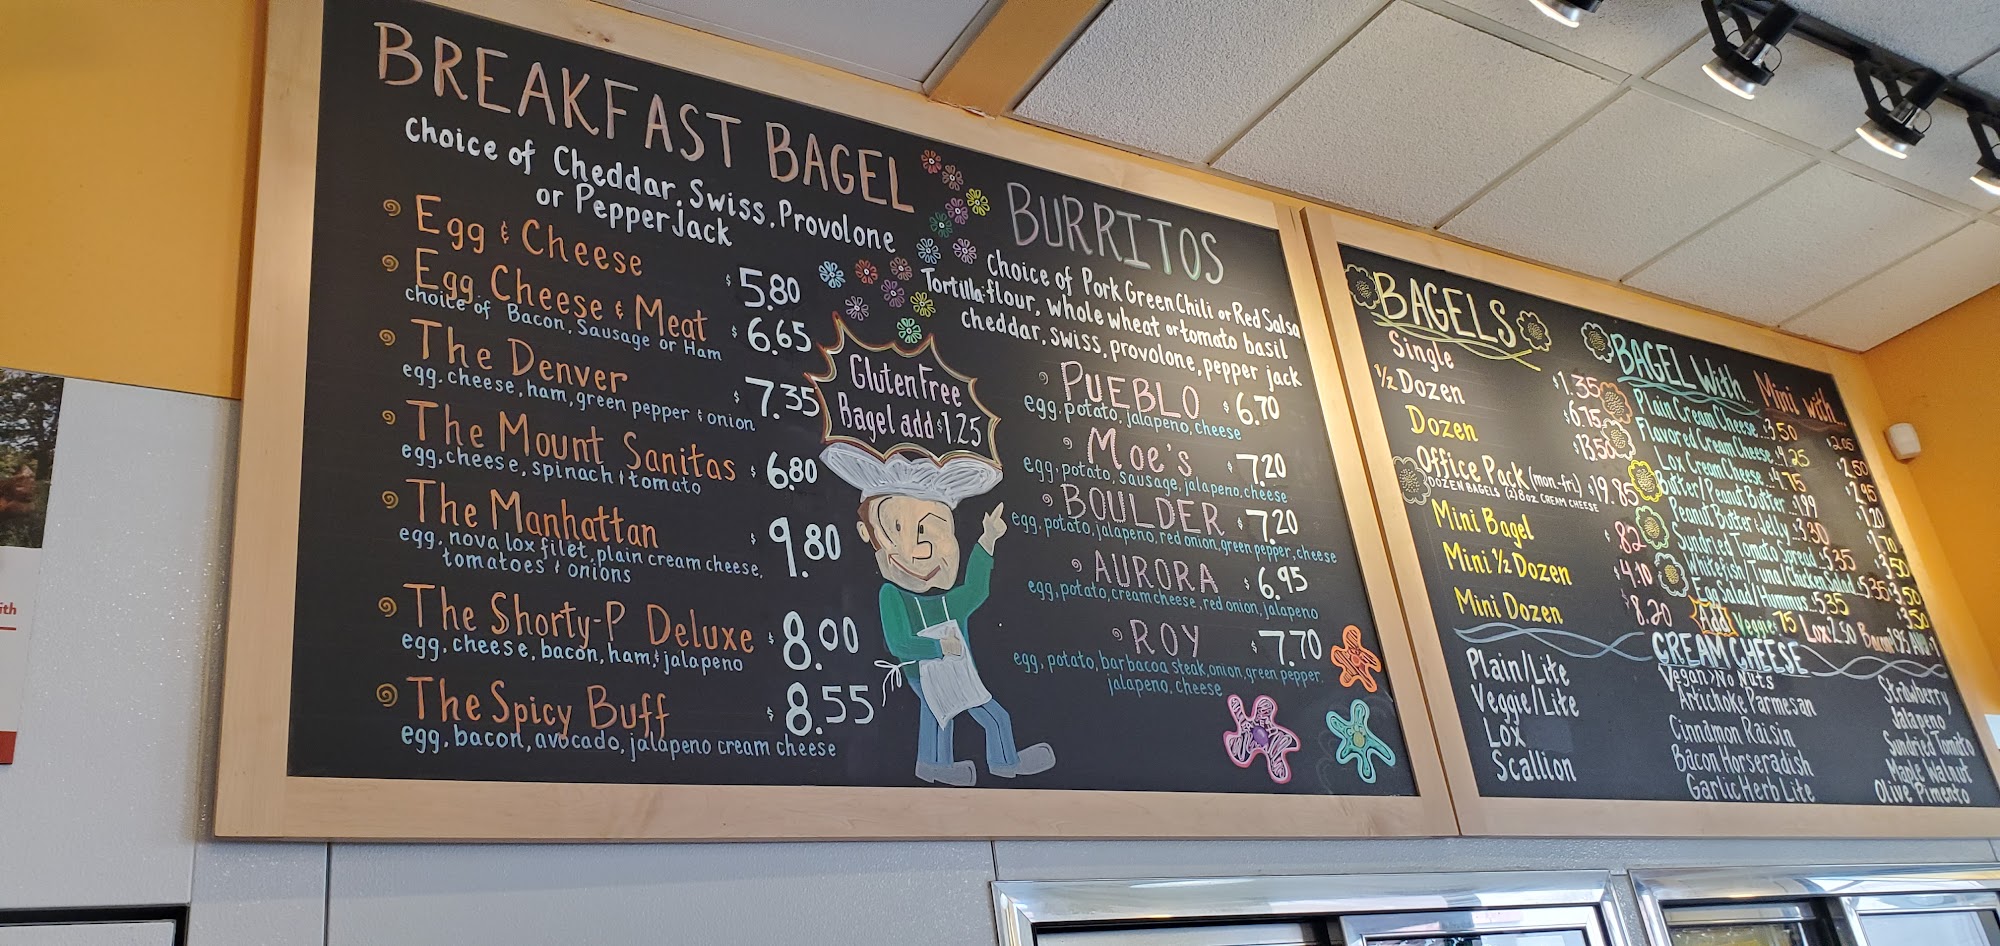 BREAKFAST BAGEL
Choice of Cheddar, Swiss, Provolone
or Pepperjack
Egg & Cheese $5.80
Egg Cheese & Meat $6.65
choice of Bacon, Sausage or Ham
The Denver $7.35
egg, cheese, ham, green pepper & onion
The Mount Sanitas $6.80
egg, cheese, spinach & tomato
The Manhattan $9.80
egg, nova lox filet, plain cream cheese,
tomatoes & onions
The Shorty-P Deluxe $8.00
egg, cheese, bacon, ham & jalapeno
The Spicy Buff $8.55
egg, bacon, avocado, jalapeno cream cheese
Gluten Free
Bagel add $1.25
BURRITOS
Choice of Pork Green Chili or Red Salsa
Tortilla: flour, whole wheat or tomato basil
cheddar, swiss, provolone, pepper jack
PUEBLO $6.70
egg, potato, jalapeno, cheese
Moe's $7.20
egg, potato, sausage, jalapeno, cheese
BOULDER $7.20
egg, potato, jalapeno, red onion, green pepper, cheese
AURORA $6.95
egg, potato, cream cheese, red onion, jalapeno
ROY $7.70
egg, potato, barbacoa steak, onion, green pepper,
jalapeno, cheese
BAGELS
Single $1.35
1/2 Dozen $6.75
Dozen $13.50
Office Pack (mon-fri) $19.85
DOZEN BAGELS (2) 8oz CREAM CHEESE
Mini Bagel $.82
Mini 1/2 Dozen $4.10
Mini Dozen $8.20
BAGEL With Mini with...
Plain Cream Cheese 3.50 $2.05
Flavored Cream Cheese $4.25 $2.50
Lox Cream Cheese $4.75 $2.95
Butter/Peanut Butter $1.99 $1.20
Peanut Butter & Jelly $3.30 $1.70
Sundried Tomato Spread $5.35 $3.50
Whitefish/Tuna/Chicken Salad $5.35 $3.50
Egg Salad/Hummus $5.35 $3.50
Add: Veggie .75 Lox
CREAM CHEESE
Plain/Lite
Veggie/Lite
Lox
Scallion
Vegan/No Nuts
Artichoke Parmesan
Cinnamon Raisin
Bacon Horseradish
Garlic Herb Lite
Strawberry
Jalapeno
Sundried Tomato
Maple Walnut
Olive Pimento
ith